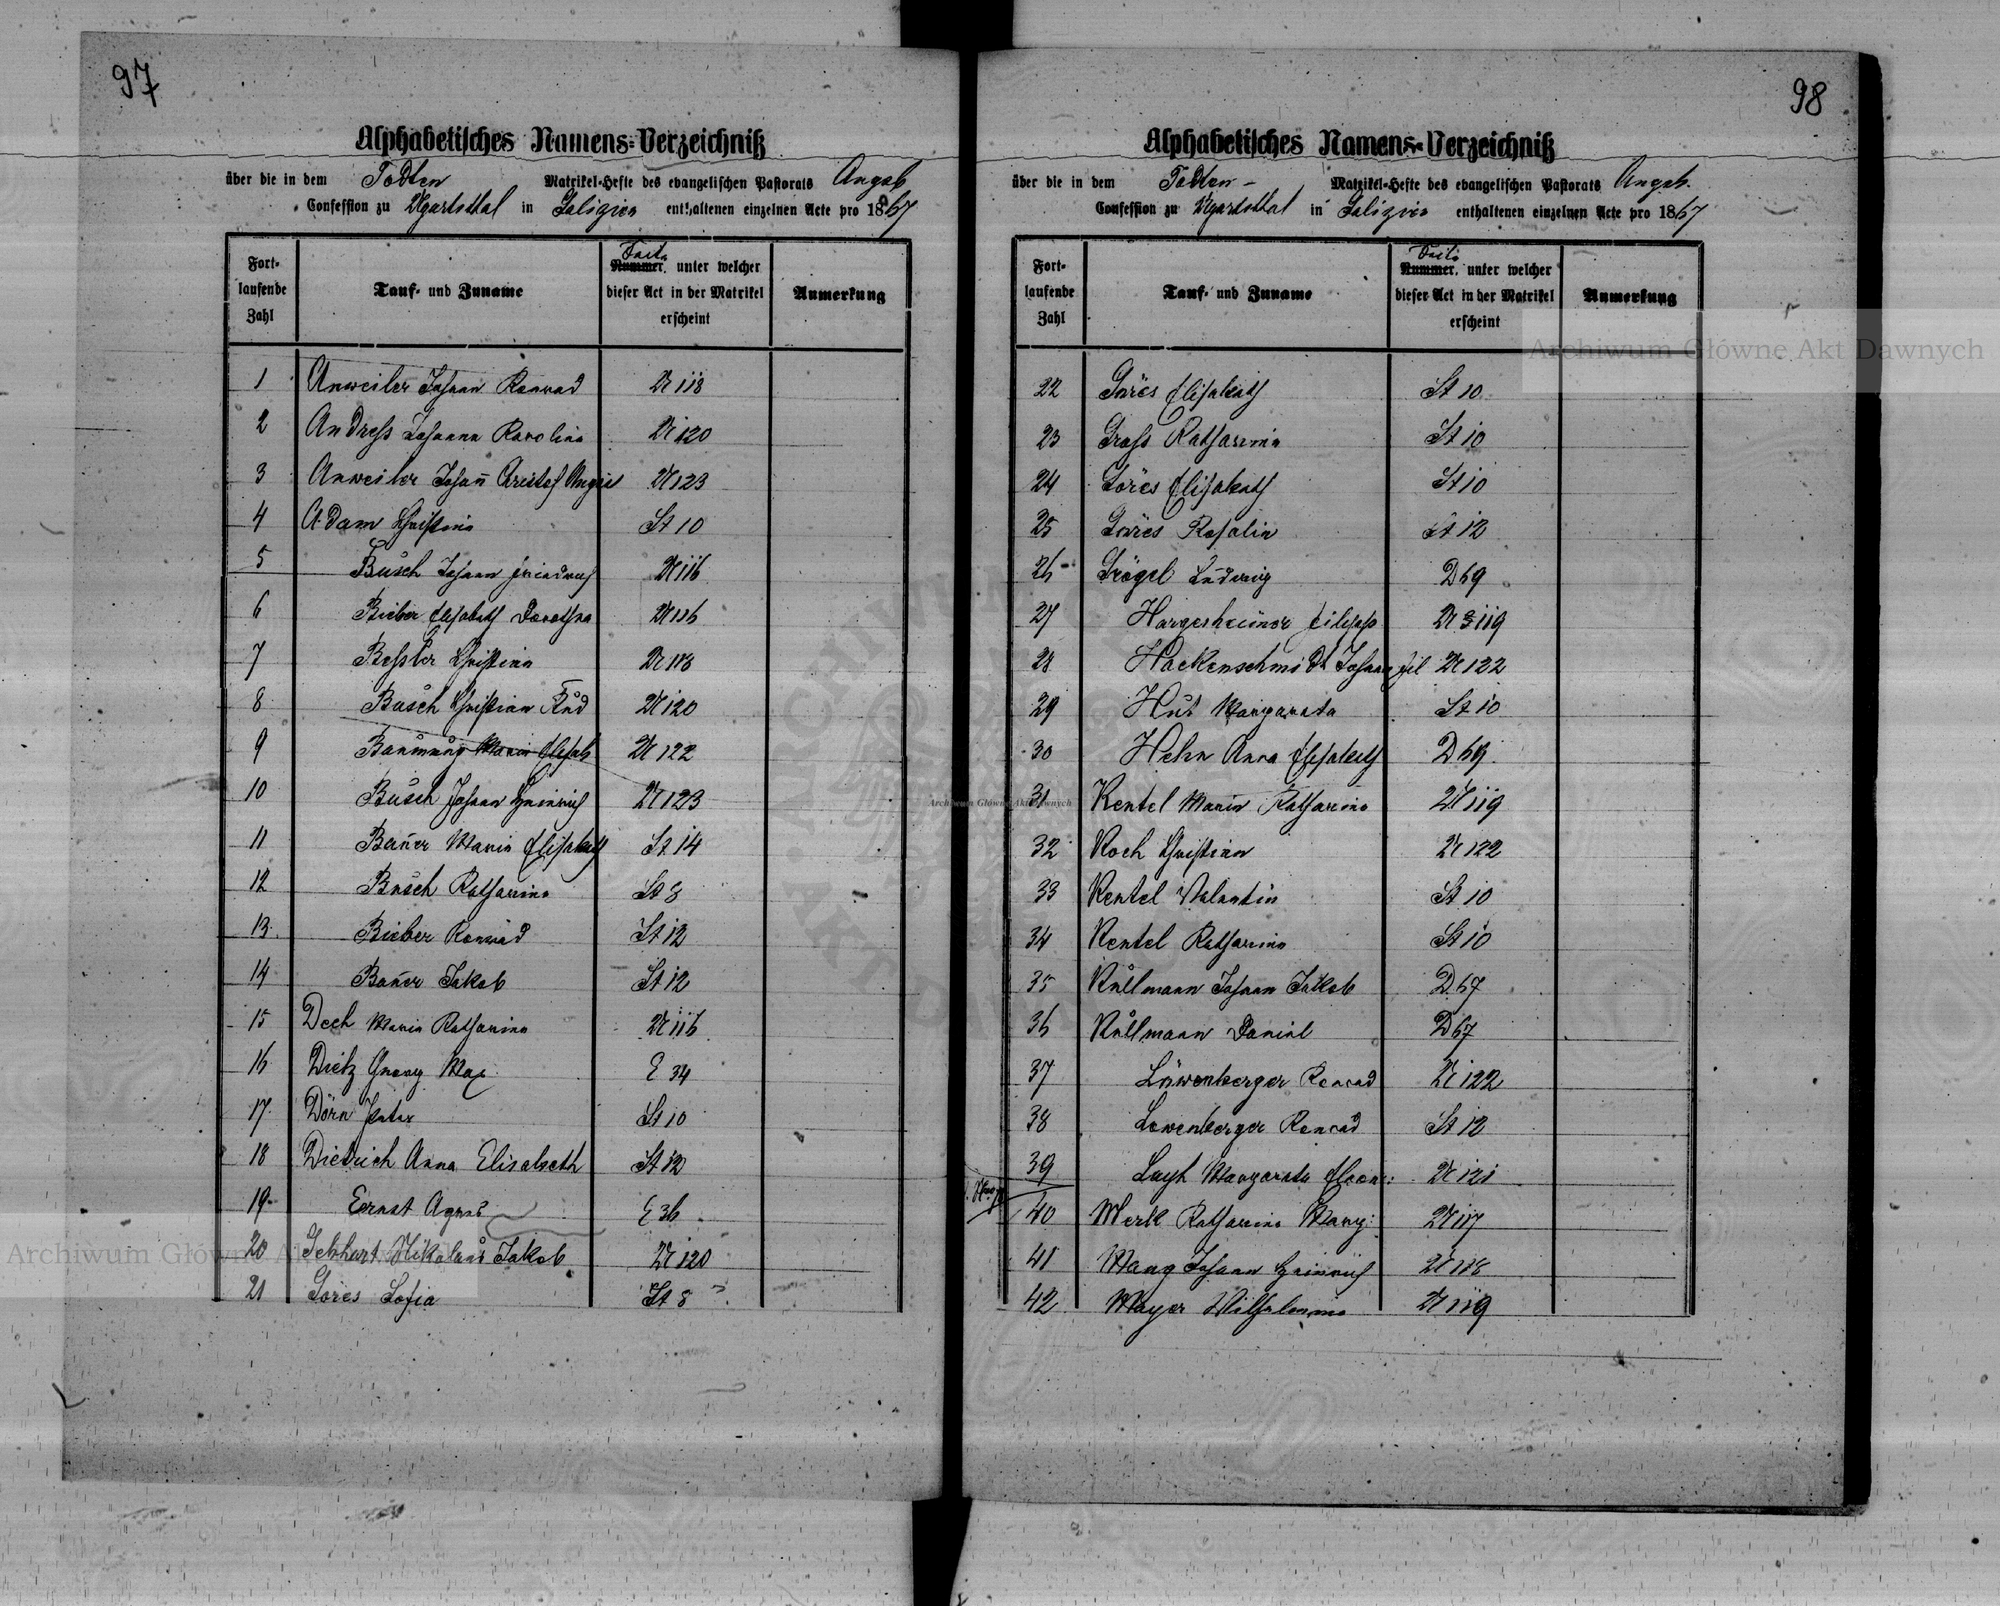 97
Alphabetisches Namens-Verzeichniß
über die in dem Todten Matrikel-Hefte des evangelischen Pastorats Augsb
Confession zu Ugartsthal in Galizien enthaltenen einzelnen Acte pro 1867
Fort-laufende Zahl
Tauf- und Zuname
Seite Nummer, unter welcher dieser Act in der Matrikel erscheint
Anmerkung
1 Anweiler Johann Konrad U 118
2 Andreß Johanna Karolina U 120
3 Anweiler Johañ Christof U 123
4 Adam Christina St 10
5 Busch Johann Friedrich U 116
6 Bieber Elisabeth Dorothea U 116
7 Bessler Christina U 118
8 Busch Christian U 120
9 Maria Elisab U 122
10 Busch Johann Heinrich U 123
11 Bauer Maria Elisabeth St 14
12 Busch Katharina St 8
13 Bieber Konrad St 12
14 Bauer Jakob St 12
15 Dech Maria Katharina U 116
16 Dietz Georg Max E 34
17 Dörn Peter St 10
18 Dietrich Anna Elisabeth St 12
19 Ernst Agnes E 36
20 Gebhart Nikolaus Jakob U 120
21 Göres Sofia St 8
98
Alphabetisches Namens-Verzeichniß
über die in dem Todten- Matrikel-Hefte des evangelischen Pastorats Augsb.
Confession zu Ugartsthal in Galizien enthaltenen einzelnen Acte pro 1867
Fort-laufende Zahl
Tauf- und Zuname
Seite Nummer, unter welcher dieser Act in der Matrikel erscheint
Anmerkung
22 Göres Elisabeth St 10
23 Groß Katharina St 10
24 Göres Elisabeth St 10
25 Göres Rosalia St 12
26 Grögel Ludwig D 69
27 Hargesheimer Filipp U 119
28 Hackenschmidt Johann Fil U 122
29 Hut Margareta St 10
30 Hehn Anna Elisabeth D 69
31 Kentel Maria Katharina U 119
32 Koch Christian U 122
33 Kentel Valentin St 10
34 Kentel Katharina St 10
35 Kullmann Johann Jakob D 67
36 Kullmann Daniel D 67
37 Löwenberger Konrad U 122
38 Löwenberger Konrad St 12
39 Margareta U 121
40 Merk Katharina Marg: U 117
41 Mang Johann Heinrich U 118
42 Mayer Wilhelmina U 119
Archiwum Główne Akt Dawnych
Archiwum Główne Akt Dawnych
Archiwum Główne Akt Dawnych